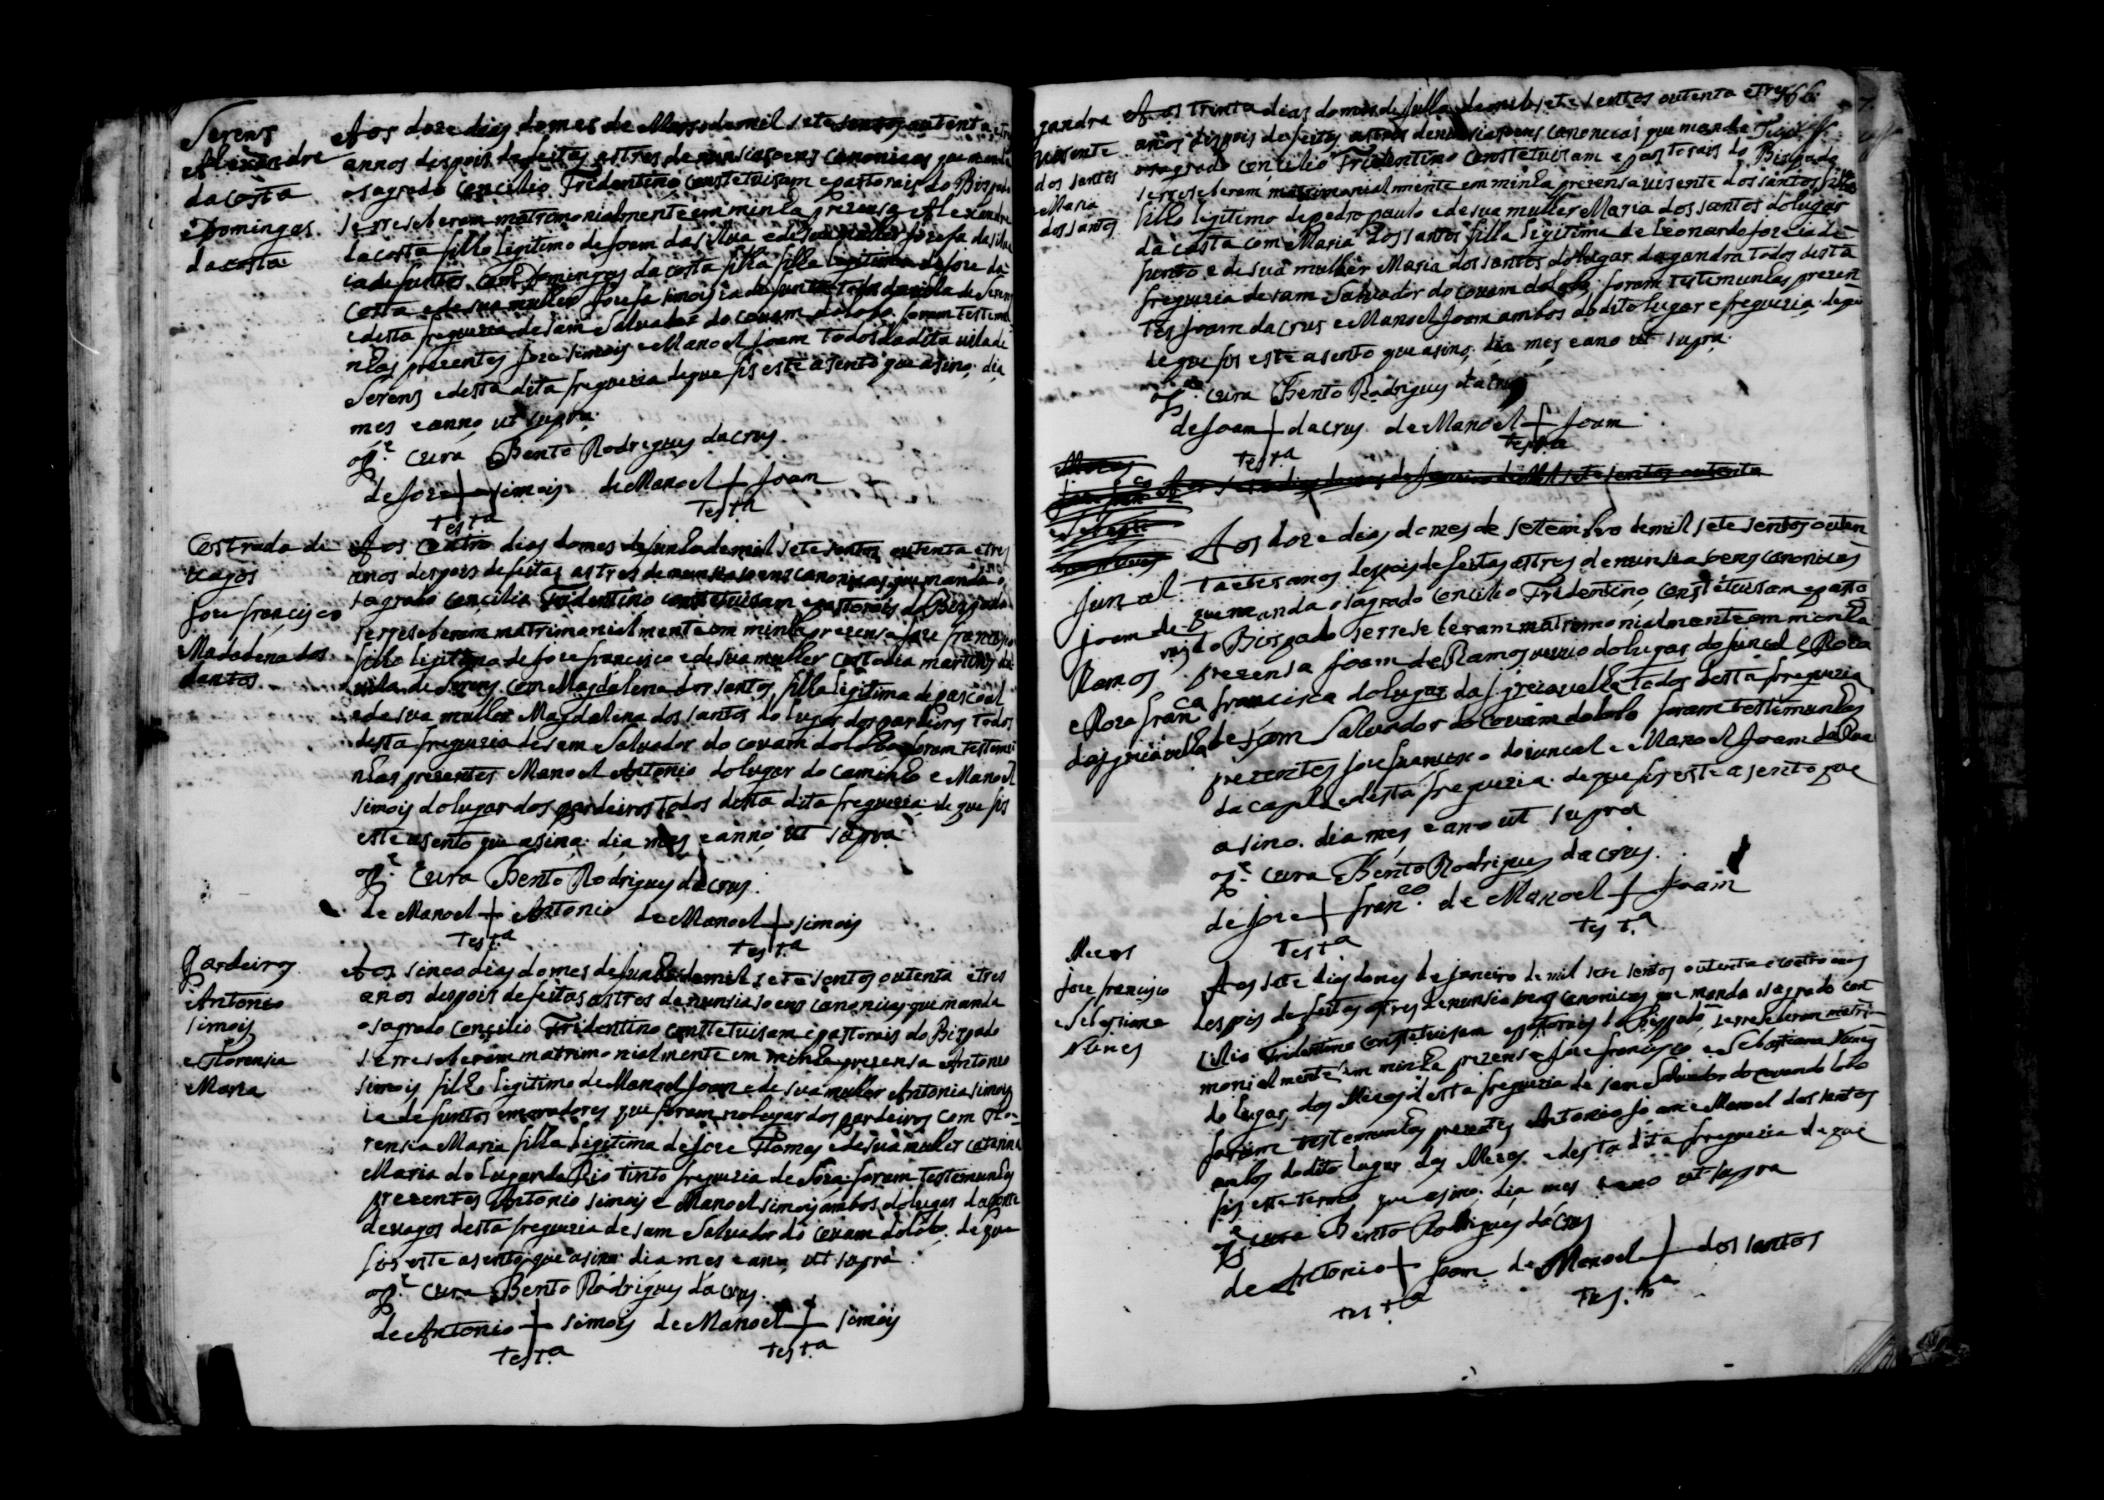 Serens
Alixandre
da costa
e Domingas
da costa
Aos doze dias do mes de Março de mil sete sentos outenta e tres
annos despois de feitas as tres denunsiasoens canonicas que manda
o sagrado Concilio Tridentino Constetuisam e pastorais do Bispado
se rreseberam matrimonialmente em minha prezensa Alexandre
da costa filho legitimo de Joam da silva e de sua mulher Josefa da silva
ia defuntos com Domingas da costa filha legitima de Joze da
Costa e de sua mulher Josefa simois ia defunta todos da vila de Serens
e desta freguezia de sam Salvador do couam do lobo foram testemu
nhas prezentes Joze simois e Manoel Joam todos da dita vila de
Serens e desta dita freguezia de que fis este asento que asino dia
mes e anno ut supra
O Pe cura Bento Rodrigues da crus
de Joze + simois de Manoel + Joam
testa testa
Costrada de
uagos
Joze francisco
Madadena dos
santos
Aos coatro dias do mes de Junho de mil sete sentos outenta e tres
anos despois de feitas as tres denunsiasoens canonicas que manda o
sagrado concilio Tridentino constetuisam e pastorais do Bispado
se rreseberam matrimonialmente em minha prezensa Joze francisco
filho legitimo de Joze francisco e de sua mulher custodia martins da
uila de Serens com Magdalena dos santos filha legitima de pascoal
e de sua mulher Magdalena dos santos do lugar dos pardieiros todos
desta freguezia de sam Salvador do couam do lobo foram testemu
nhas prezentes Manoel Antonio do lugar do caminho e Manoel
simois do lugar dos pardeiros todos desta dita freguezia de que fis
este asento que asino dia mes e anno ut supra
O Pe Cura Bento Rodrigues da crus
de Manoel + Antonio de Manoel + simois
testa testa
Pardeiros
Antonio
simois
e florensia
Maria
Aos sinco dias do mes de Junho de mil sete sentos outenta e tres
anos despois de feitas as tres denunsiasoens canonicas que manda
o sagrado Concilio Tridentino constetuisam e pastorais do Bispado
se rreseberam matrimonialmente em minha prezensa Antonio
simois filho legitimo de Manoel Joam e de sua mulher Antonia simois
ia defuntos e moradores que foram no lugar dos pardeiros com flo-
rensia Maria filha legitima de Joze Thomas e de sua mulher catarina
Maria do lugar do Rio tinto freguezia de Soza foram testemunhas
prezentes Antonio simois e Manoel simois ambos do lugar da ponte
de uagos desta freguezia de sam Salvador do couam do lobo de que
fis este asento que asino dia mes e ano ut supra
O Pe Cura Bento Rodrigues da crus
de Antonio + simois de Manoel + simois
testa testa
gandra
uisente
dos santos
e Maria
dos santos
Aos trinta dias do mes de Julho de mil sete sentos outenta e tres
anos despois de feitas as tres denunsiasoens canonicas que manda
o sagrado concilio Tridentino constetuisam e pastorais do Bispado
se rreseberam matrimonialmente em minha prezensa uisente dos santos
filho legitimo de pedro paulo e de sua mulher Maria dos santos do lugar
da costa com Maria dos santos filha legitima de Leonardo ia de
funto e de sua mulher Maria dos santos do lugar da gandra todos desta
freguezia de sam Salvador do couam do lobo foram testemunhas prezen
tes Joam da crus e Manoel Joam ambos do dito lugar e freguezia de
de que fis este asento que asino dia mes e ano ut supra
O Pe cura Bento Rodrigues da crus
de Joam + da crus de Manoel + Joam
testa testa
Juncal
Joam de
Ramos
e Roza franca
da igreia uelha
Aos doze dias do mes de setembro de mil sete sentos outen
ta e tres anos despois de feitas as tres denunsiasoens canonicas
que manda o sagrado concilio Tridentino constetuisam e pasto
rais do Bispado se rreseberam matrimonialmente em minha
prezensa Joam de Ramos uiuuo do lugar do juncal e Roza
francisca do lugar da igreia uelha todos desta freguezia
de sam Salvador do couam do lobo foram testemunhas
prezentes Joze francisco do iuncal e Manoel Joam da Rua
da capela e desta freguezia de que fis este asento que
asino dia mes e ano ut supra
O Pe cura Bento Rodrigues da crus
de Joze + franco de Manoel + Joam
testa testa
Mezas
Joze francisco
e Sebastiana
Nunes
Aos sete dias do mes de janeiro de mil sete sentos outenta e coatro anos
despois de feitas as tres denunsiasoens canonicas que manda o sagrado con
cilio Tridentino constetuisam e pastorais do Bispado se rreseberam matri-
monialmente em minha prezensa Joze francisco e Sebastiana Nunes
do lugar dos Mezas desta freguezia de sam Salvador do couam do lobo
foram testemunhas prezentes Antonio Joam e Manoel dos santos
ambos do dito lugar das Mezas e desta dita freguezia de que
fis este termo que asino dia mes e ano ut supra
O Pe cura Bento Rodrigues da Crus
de Antonio + Joam de Manoel + dos santos
testa testa